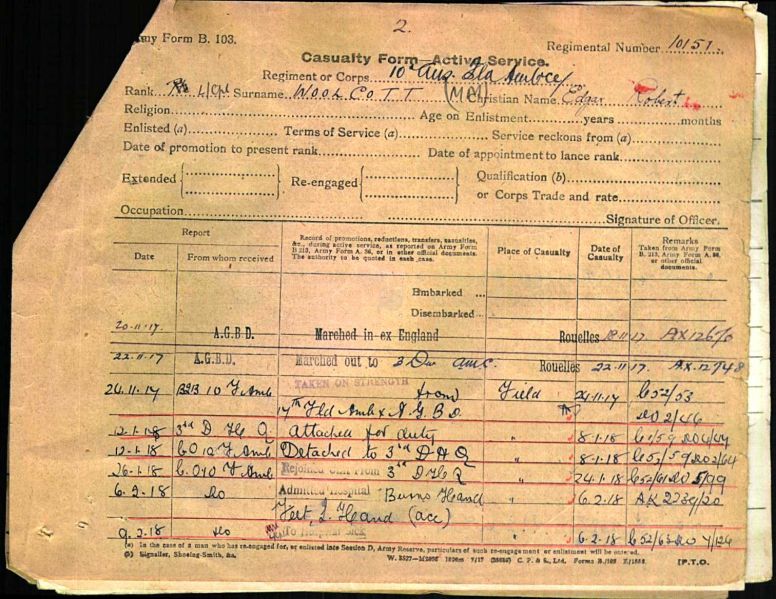 2.
Army Form B. 103.
Regimental Number 10151.
Casualty Form—Active Service.
Regiment or Corps 10th Aus. Fld Ambce
Rank L/Cpl Surname WOOLCOTT Christian Name Edgar Robert
Religion Age on Enlistment years months
Enlisted (a) Terms of Service (a) Service reckons from (a)
Date of promotion to present rank Date of appointment to lance rank
Extended Re-engaged Qualification (b)
or Corps Trade and rate
Occupation Signature of Officer.
Report
Date
From whom received
Record of promotions, reductions, transfers, casualties, &c., during active service, as reported on Army Form B 213, Army Form A. 36, or in other official documents. The authority to be quoted in each case.
Place of Casualty
Date of Casualty
Remarks
Taken from Army Form B. 213, Army Form A. 36, or other official documents.
Embarked ...
Disembarked ...
20-11-17. A.G.B.D. Marched in ex England Rouelles 18-11-17
22-11-17. A.G.B.D. Marched out to 3 Div Rouelles 22-11-17.
24.11.17 B213 10 F Amb TAKEN ON STRENGTH from Field 24.11.17 C52/53
17th Fld Amb A.G.B.D. DO 2/46
12-1-18 3rd D H Q Attached for duty " 8-1-18
12-1-18 CO 10 F Amb Detached to 3rd D H Q " 8-1-18
26-1-18 CO 10 F Amb Rejoined Unit From 3rd D H Q " 24.1.18 C52/61 DO 5/99
6.2.18 do Admitted Hospital Burns Hand " 6.2.18 AK 2239/20
Feet, L Hand (acc)
9.2.18 do To Hospital Sick " 6.2.18 C52/63 DO 7/124
(a) In the case of a man who has re-engaged for, or enlisted into Section D, Army Reserve, particulars of such re-engagement or enlistment will be entered.
(b) Signaller, Shoeing-Smith, &c.
[P.T.O.